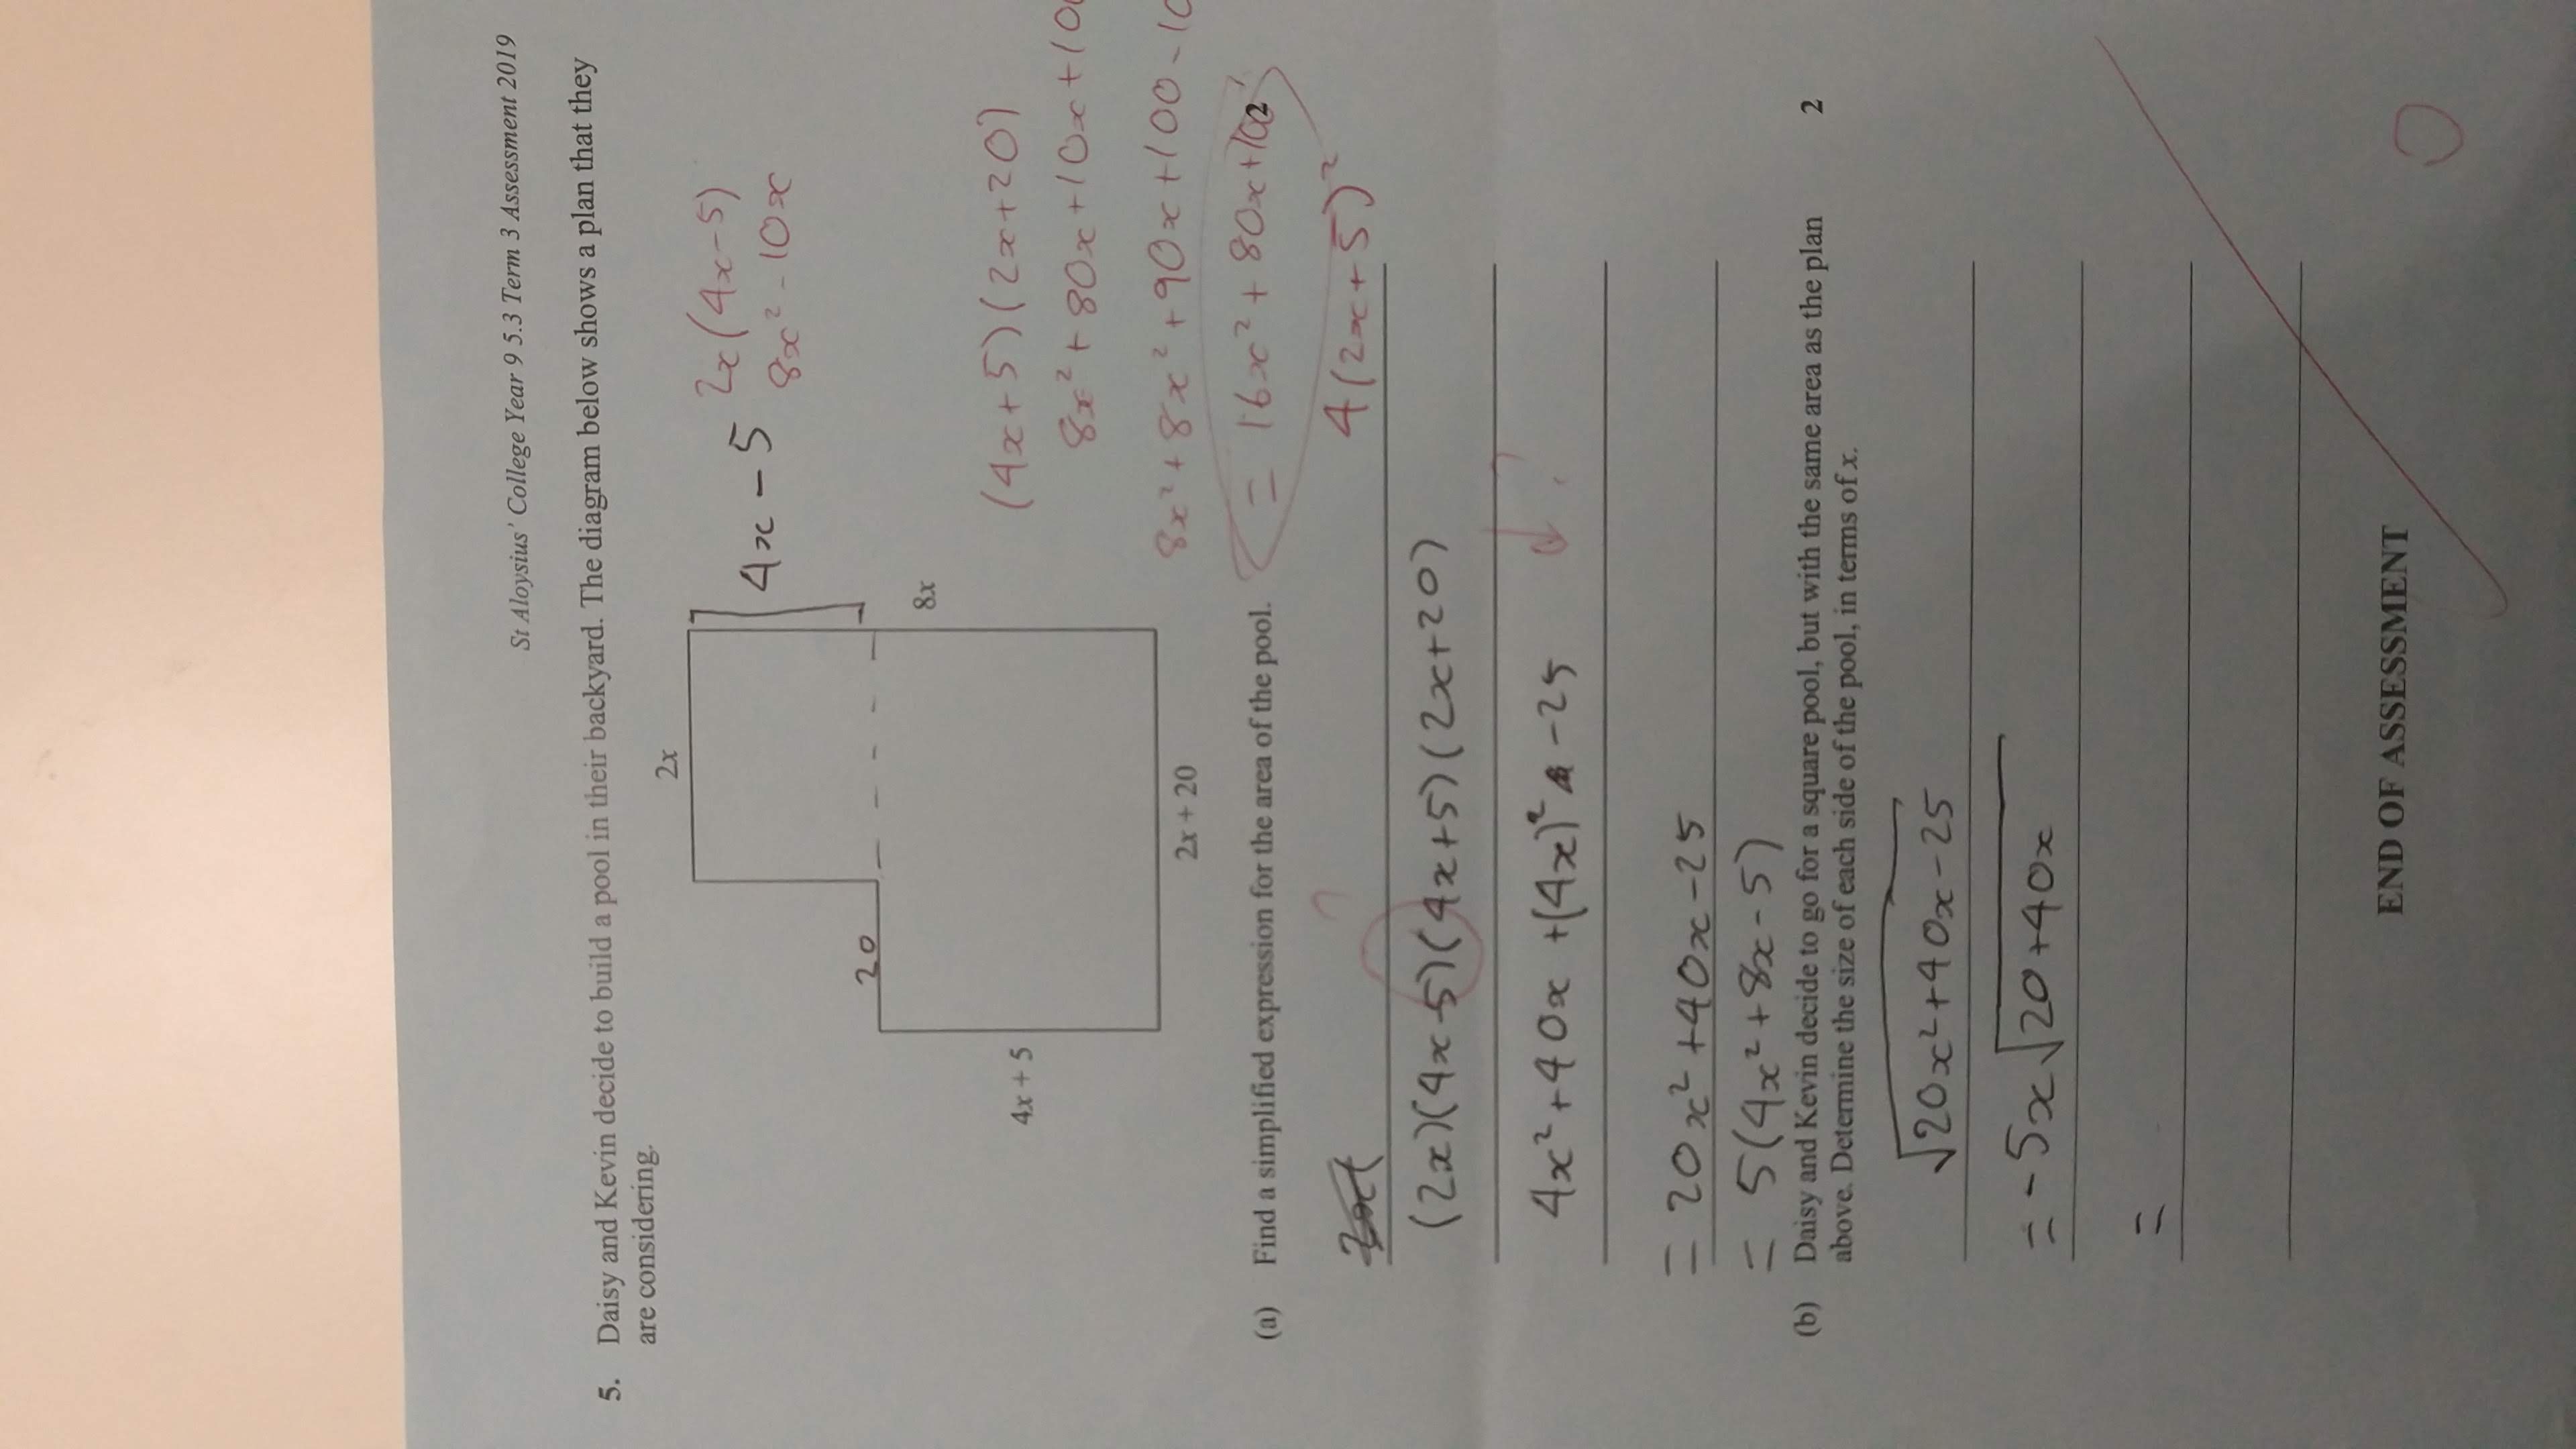 St Aloysius' College Year 9 5.3 Term 3 Assessment 2019
5. Daisy and Kevin decide to build a pool in their backyard. The diagram below shows a plan that they
are considering.
2x
4x - 5
2x(4x-5)
8x² - 10x
20
8x
4x + 5
(4x+5)(2x+20)
8x² + 80x + 10x + 100
2x + 20
8x² + 8x² + 90x + 100 - 10
= 16x² + 80x + 100
2
(a) Find a simplified expression for the area of the pool.
4(2x+5)²
?
(2x)(4x-5)(4x+5)(2x+20)
4x² + 40x + (4x)² - 25
?
= 20x² + 40x - 25
= 5(4x² + 8x - 5)
(b) Daisy and Kevin decide to go for a square pool, but with the same area as the plan 2
above. Determine the size of each side of the pool, in terms of x.
√20x² + 40x - 25
= -5x√20 + 40x
=
END OF ASSESSMENT
0